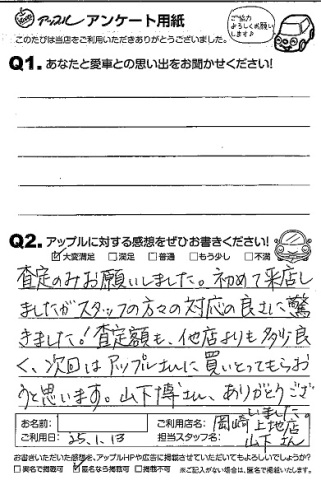 アップル アンケート用紙
ご協力
よろしくお願い
します♪
このたびは当店をご利用いただきありがとうございました。
Q1. あなたと愛車との思い出をお聞かせください!
Q2. アップルに対する感想をぜひお書きください!
☑大変満足 □満足 □普通 □もう少し □不満
査定のみお願いしました。初めて来店し
ましたがスタッフの方々の対応の良さに驚
きました!査定額も、他店よりも多少良
く、次回はアップルさんに買いとってもらお
うと思います。山下博さん、ありがとうござ
いました。
お名前:
ご利用店名: 岡崎上地店
ご利用日: 25.1.13
担当スタッフ名: 山下さん
お書きいただいた感想を、アップルHPや広告に掲載させていただいてもよろしいでしょうか?
□実名で掲載可 ☑匿名なら掲載可 □掲載不可 ※ご記入がない場合は、匿名で掲載いたします。